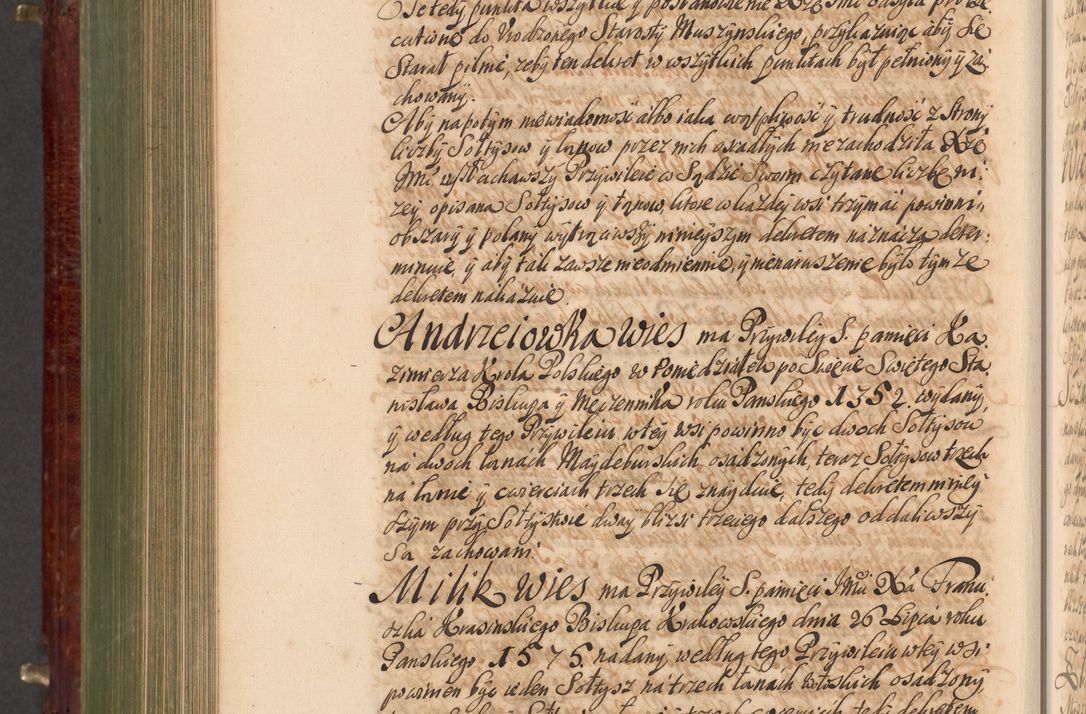 Te tedy punkta wszytkie y postanowienie Xże Jmć odsyła pro exe
cutione do Urodzonego Starosty Muszynskiego, przykazuiąc aby się
Starał pilnie, żeby ten dekret w wszytkich punktach był pełniony y za
chowany.
Aby napotym niewiadomość albo iaka wątpliwość y trudność z Strony
liczby Sołtysow y łanow przez nich osadłych nie zachodziła Xże
Jmć wysłuchawszy Przywileie w Sądzie Swoim czytane liczbę ni:
zey opisaną Sołtysow y łanow, ktore w kazdey wsi trzymać powinni,
obszary y polany wytrzawszy ninieyszym dekretem naznacza deter:
minuie, y aby tak zawsze nieodmiennie, y nienaruszenie było tymże
dekretem nakazuie.
Andrzeiowka wies ma Przywiley S. pamięci Ka
zimierza Krola Polskiego w Poniedziałek po Święcie Swiętego Sta
nisława Biskupa y Męczennika roku Panskiego 1352. wydany,
y według tego Przywileiu w tey wsi powinno być dwoch Sołtysow
na dwoch łanach Maydeburskich osadzonych, teraz Sołtysow trzech
na łanie y cwierciach trzech się znayduie, tedy dekretem mniey
szym przy Sołtystwie dway blizsi trzeciego dalszego oddaliwszy
Są zachowani.
Milik wies ma Przywiley S. pamięci Jmći Xa Franci
szka Krasinskiego Biskupa Krakowskiego dnia 26 Lipca roku
Panskiego 1575. nadany, według tego Przywileiu w tey wsi
powinien być ieden Sołtysz na trzech łanach Włoskich osadzony,